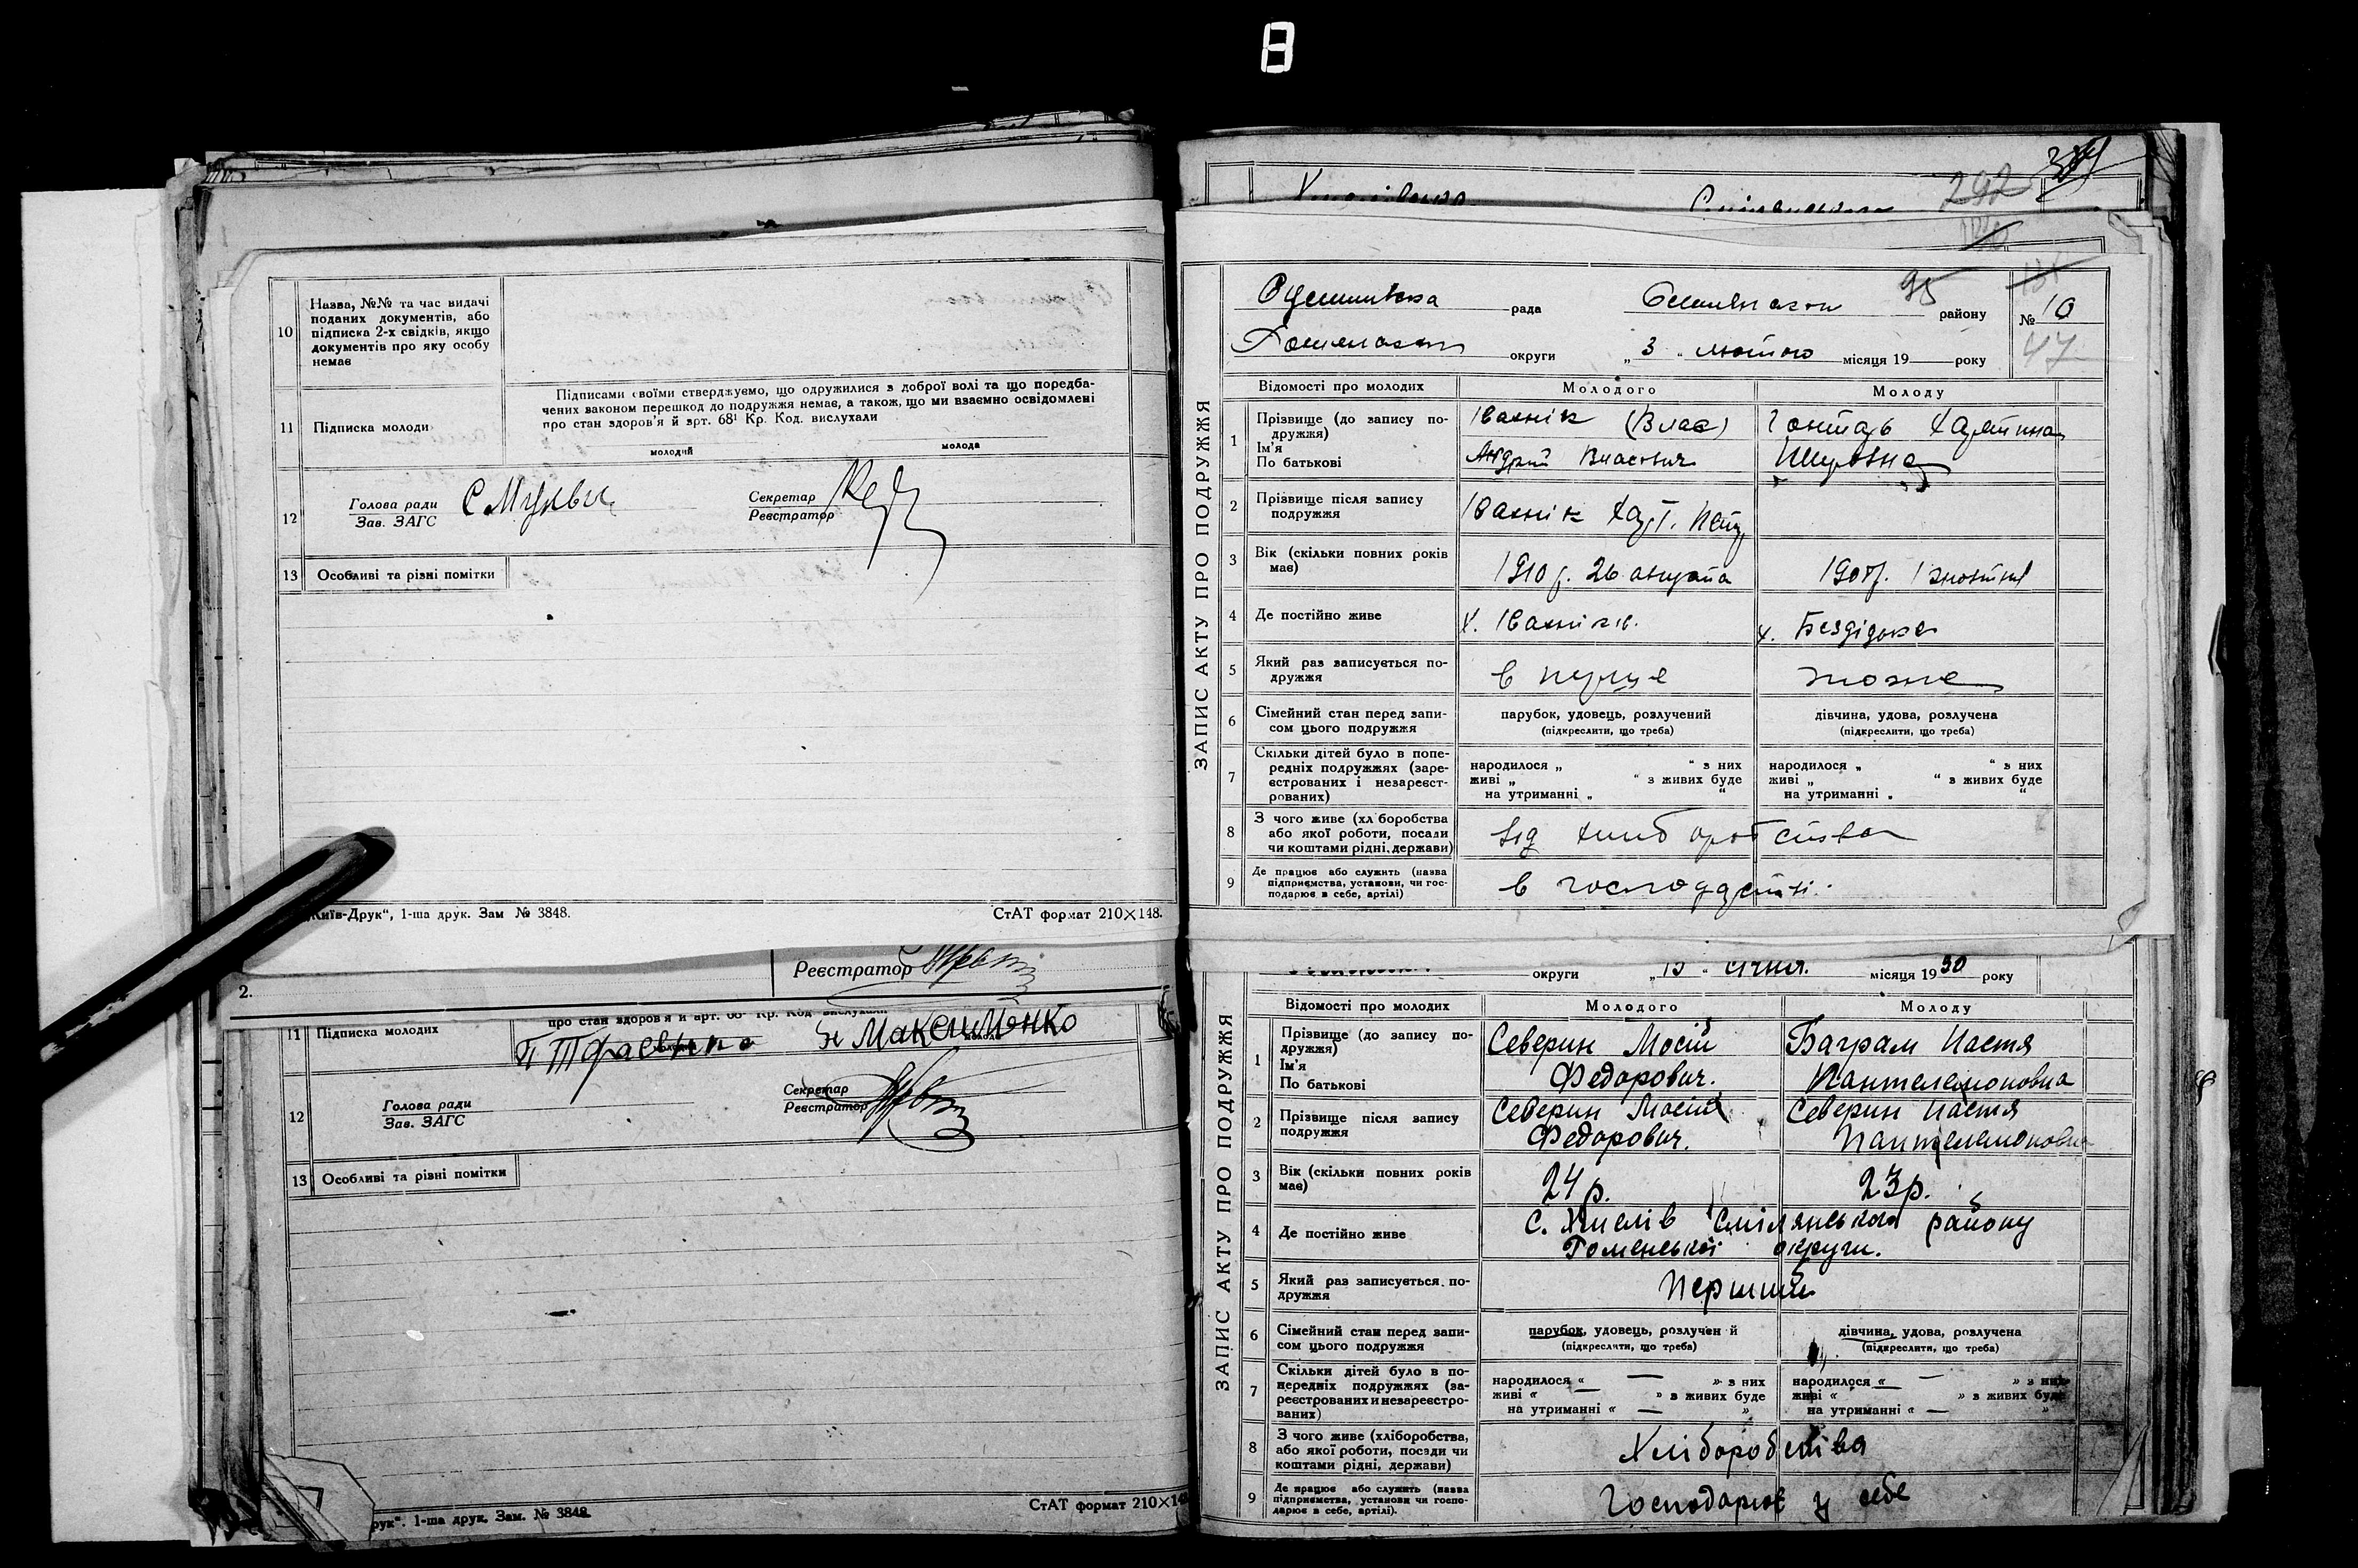 8
292
10
Назва, №№ та час видачі
поданих документів, або
підписка 2-х свідків, якщо
документів про яку особу
немає
11
Підписка молоди
Підписами своїми стверджуємо, що одружилися з доброї волі та що передба-
чених законом перешкод до подружжя немає, а також, що ми взаємно освідомлені
про стан здоров'я й арт. 68¹ Кр. Код. вислухали
молодий
молода
12
Голова ради
Зав. ЗАГС
Секретар
Реєстратор
13
Особливі та різні помітки
Київ-Друк", 1-ша друк. Зам № 3848.
СтАТ формат 210×148.
2.
Реєстратор
11
Підписка молодих
про стан здоров'я й арт. 68¹ Кр. Код вислухали
Максименко
12
Голова ради
Зав. ЗАГС
Секретар
Реєстратор
13
Особливі та різні помітки
рук". 1-ша друк. Зам. № 3848.
СтАТ формат 210×148
ЗАПИС АКТУ ПРО ПОДРУЖЖЯ
рада
95
району
№ 10
округи
„ 3 " лютого місяця 19 року
47
Відомості про молодих
Молодого
Молоду
1
Прізвище (до запису по-
дружжя)
Ім'я
По батькові
Івахнік (Влас)
Андрій Власович
2
Прізвище після запису
подружжя
Івахнік
3
Вік (скільки повних років
має)
1910 р. 26
4
Де постійно живе
х.
х. Бездідька
5
Який раз записується по-
дружжя
в перше
тоже
6
Сімейний стан перед запи-
сом цього подружжя
парубок, удовець, розлучений
(підкреслити, що треба)
дівчина, удова, розлучена
(підкреслити, що треба)
7
Скільки дітей було в попе-
редніх подружжях (заре-
єстрованих і незареєст-
рованих)
народилося „ " з них
живі „ " з живих буде
на утриманні „ "
народилося „ " з них
живі „ " з живих буде
на утриманні „ "
8
З чого живе (хліборобства
або якої роботи, посади
чи коштами рідні, держави)
від хліборобства
9
Де працює або служить (назва
підприємства, установи, чи гос-
подарює в себе, артілі)
в господарстві.
ЗАПИС АКТУ ПРО ПОДРУЖЖЯ
округи
„ 15 " січня. місяця 1930 року
Відомості про молодих
Молодого
Молоду
1
Прізвище (до запису по-
дружжя)
Ім'я
По батькові
Северин Мосій
Федорович.
Баграм Настя
Пантелемоновна
2
Прізвище після запису
подружжя
Северин Мосій
Федорович.
Северин Настя
Пантелемоновна
3
Вік (скільки повних років
має)
24 р.
23 р.
4
Де постійно живе
с. Хмелів Смілянського району
Роменської округи.
5
Який раз записується по-
дружжя
перший
6
Сімейний стан перед запи-
сом цього подружжя
парубок, удовець, розлучен й
(підкреслити, що треба)
дівчина, удова, розлучена
(підкреслити, що треба)
7
Скільки дітей було в по-
передніх подружжях (за-
реєстрованих и незареєстро-
ваних)
народилося « — » з них
живі « — » з живих буде
на утриманні « — »
народилося « — » з них
живі « » з живих буде
на утриманні « — »
8
З чого живе (хліборобства,
або якої роботи, посади чи
коштами рідні, держави)
Хліборобства
9
Де працює або служить (назва
підприємства, установи чи госпо-
дарює в себе, артілі).
Господарює у себе